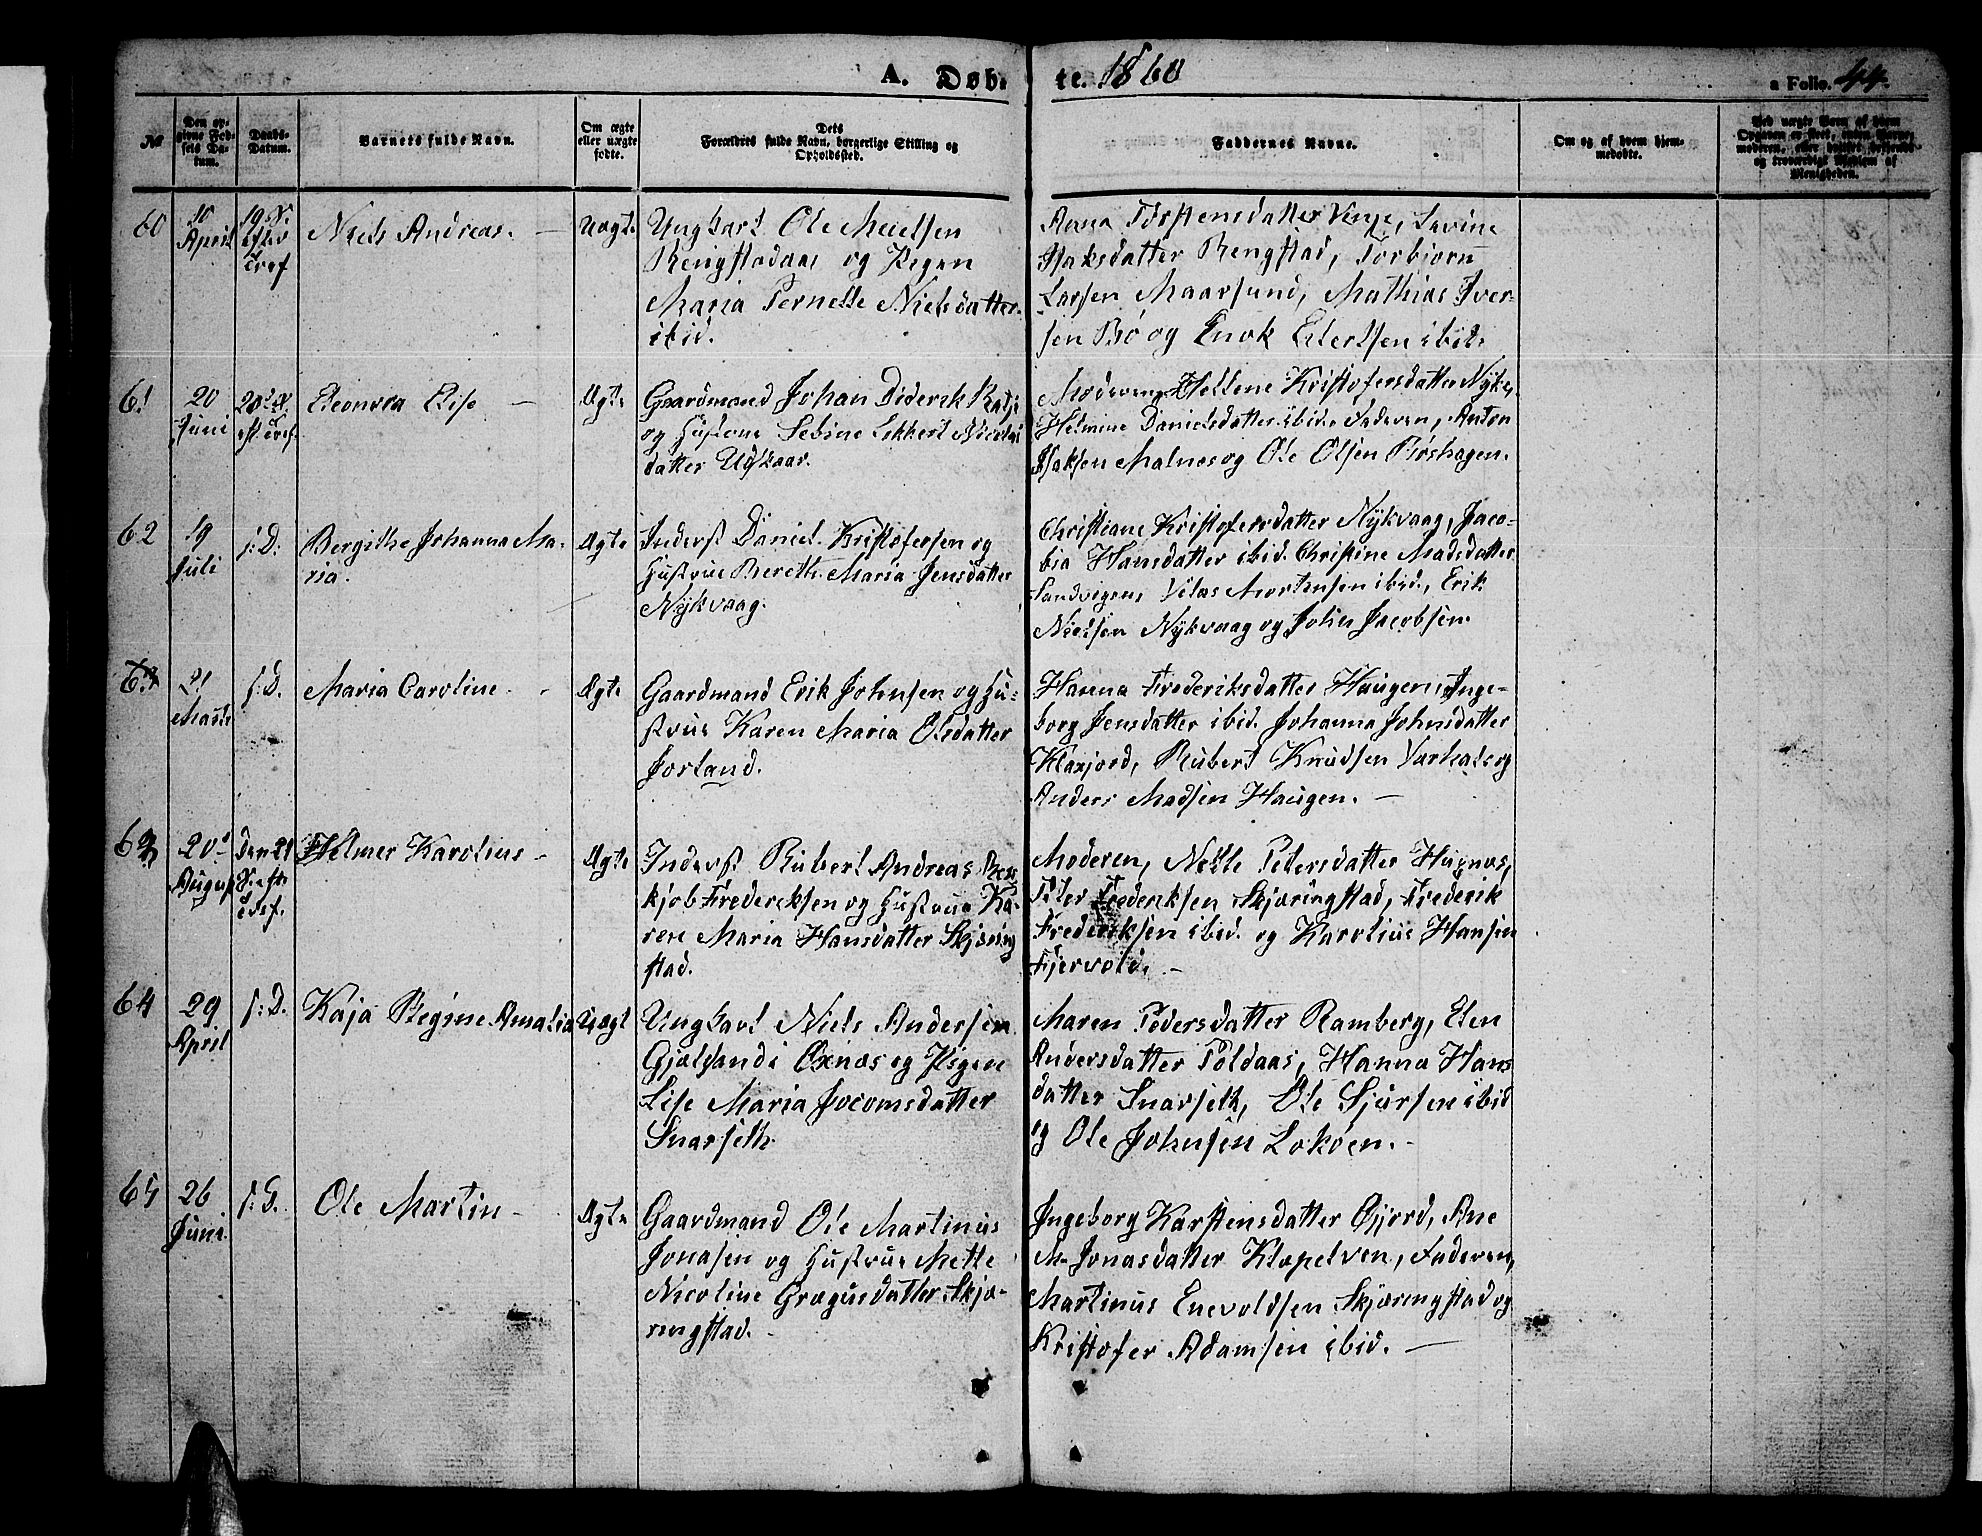 A. Døb- te. 1860
a Folio. 44.
№
Den opgivne Fødsels Datum.
Daabs-Datum.
Barnets fulde Navn.
Om ægte eller uægte fødte.
Dets Forældres fulde Navn, borgerlige Stilling og Opholdssted.
Faddernes Navne.
Om og af hvem hjemmedøbte.
60
10 April
Niels Andreas.
Uægte
Ungkarl Ole Nielsen
Rengstadaas og Pigen
Maria Pernelle Nielsdatter
ibid.
Anna Torstensdatter Vinje, Lavine
Isaksdatter Rengstad, Torbjørn
Larsen Maarsund, Mathias Iver-
sen Bø og Enok Eilertsen ibid.
61
20 Juni
Eleonora Elise
Ægte
Gaardmand Johan Diderik
og Hustrue Sebine Lekkert
datter Uglskaar.
Moderen, Hellene Kristofersdatter
Helmine Danielsdatter ibid. Faderen, Anton
Isaksen Malnes og Ole Olsen Røshagen.
62
19 Juli
s: D:
Bergithe Johanna Ma-
ria.
Ægte
Inderst Daniel Kristofersen og
Hustrue Bereth Maria Jensdatter
Nykvaag.
Christiane Kristofersdatter Nykvaag, Jaco-
bia Hansdatter ibid. Christine Madsdatter
Sandvigen, Mortensen ibid., Erik
Nielsen Nykvaag og John Jacobsen.
21 Marts
s: D.
Maria Caroline
Ægte
Gaardmand Erik Johnsen og Hu-
strue Karen Maria Olsdatter
Jorland.
Hanna Frederiksdatter Haugen, Inge-
borg Jensdatter ibid. Johanna Johnsdatter
Klaxjord, Rubert Knudsen og
Anders Madsen Haugen.
63
20 August
Helmer Karolius
Ægte
Inderst Rubert Andreas
Frederiksen og Hustrue Ka-
ren Maria Hansdatter Skjæring
stad.
Moderen, Nelle Petersdatter
Peter Frederiksen Skjæringstad, Frederik
Frederiksen ibid. og Karolius Hansen
Fjervold.
64
29 April
s: D.
Kaja Regine Amalia
Uægt
Ungkarl Niels Andersen
Gjælsand i Øxnæs og Pigen
Lise Maria Jocomsdatter
Snarseth.
Maren Pedersdatter Ramberg, Elen
Andersdatter Poldaas, Hanna Hans
datter Snarseth, Ole Sjursen ibid
og Ole Johnsen Lokøen.
65
26 Juni
Ole Martin
Ægte
Gaardmand Ole Martinus
Jonasen og Hustrue Mette
Nicoline Grægusdatter Skjæ-
ringstad.
Ingeborg Karstensdatter Gjord, Ane
M. Jonasdatter Klæpelven, Faderen,
Martinus Enevoldsen Skjæringstad og
Kristofer Adamsen ibid.